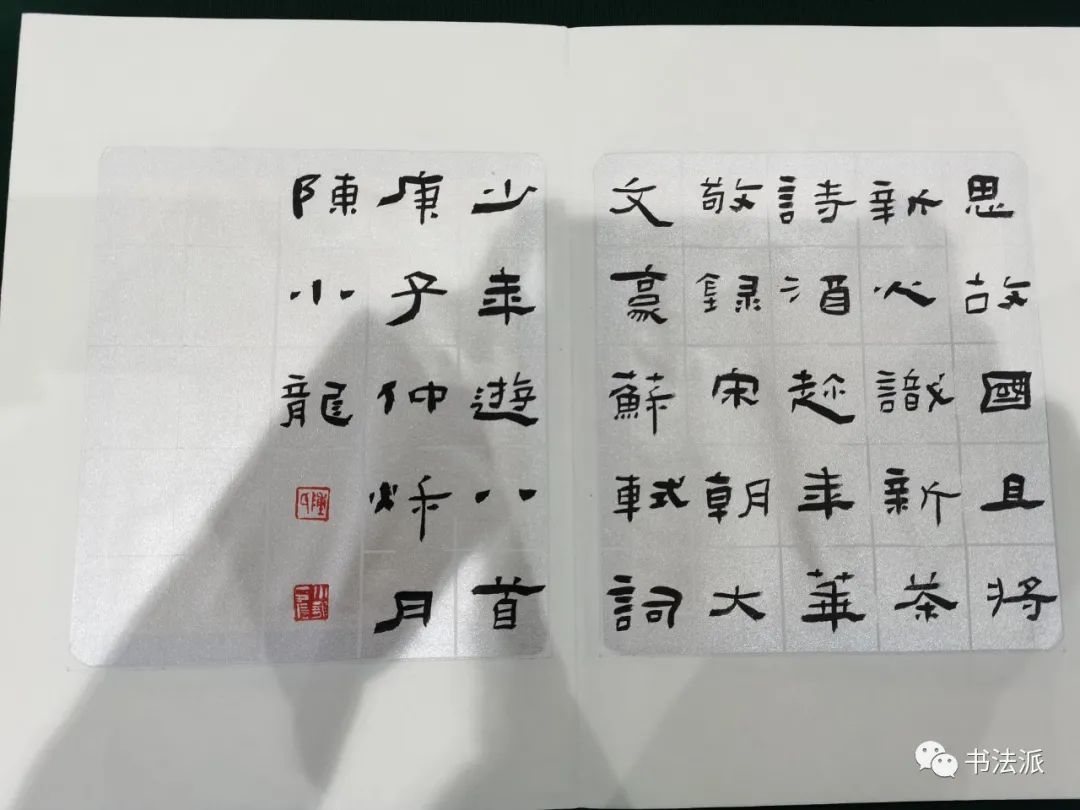 思故國且將
新火試新茶
詩酒趁年華
敬錄宋朝大
文豪蘇軾詞
少年遊八首
庚子仲秌月
陳小龍
陳氏
书法派